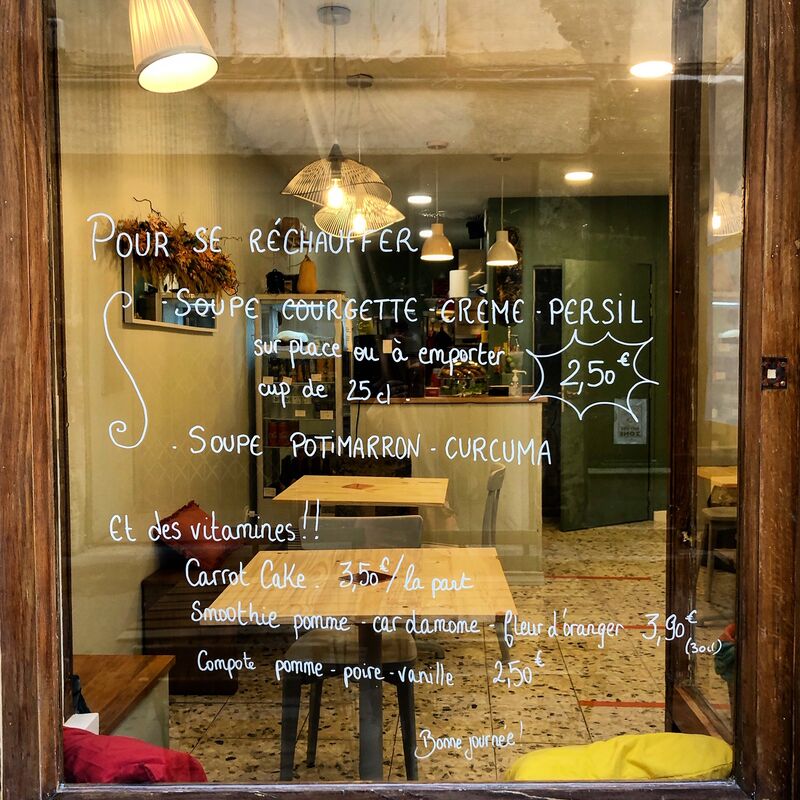 POUR SE RÉCHAUFFER
- SOUPE COURGETTE - CRÈME - PERSIL
sur place ou à emporter
cup de 25 cl.
2,50€
- SOUPE POTIMARRON - CURCUMA
Et des vitamines!!
Carrot Cake. 3,50€/la part
Smoothie pomme - cardamome - fleur d'oranger 3,90€
(30cl)
Compote pomme - poire - vanille 2,50€
Bonne journée!